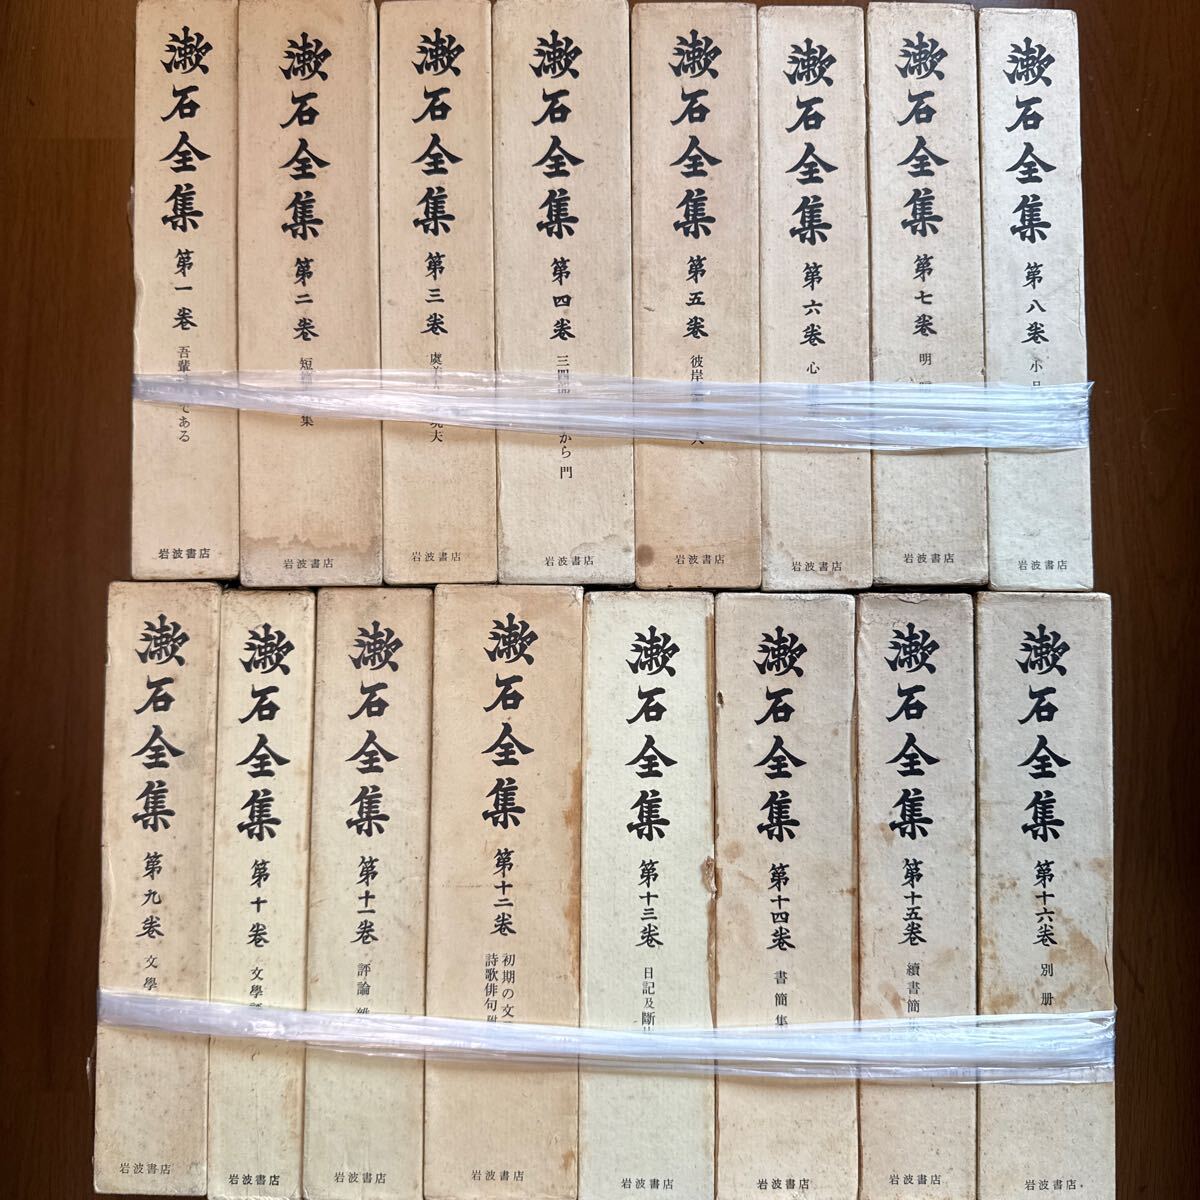 漱石全集 第一巻 吾輩である
岩波書店
漱石全集 第二巻 短集
岩波書店
漱石全集 第三巻 虞美
岩波書店
漱石全集 第四巻 三四郎から 門
岩波書店
漱石全集 第五巻 彼岸
岩波書店
漱石全集 第六巻 心
岩波書店
漱石全集 第七巻 明
岩波書店
漱石全集 第八巻 小
岩波書店
漱石全集 第九巻 文學
岩波書店
漱石全集 第十巻 文學
岩波書店
漱石全集 第十一巻 評論
岩波書店
漱石全集 第十二巻 初期の文
詩歌俳句附
岩波書店
漱石全集 第十三巻 日記及斷
岩波書店
漱石全集 第十四巻 書簡集
岩波書店
漱石全集 第十五巻 續書簡
岩波書店
漱石全集 第十六巻 別册
岩波書店